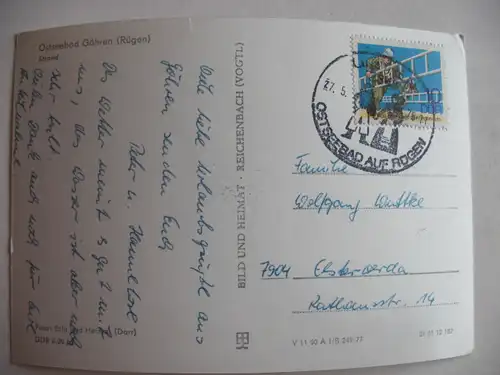 Ostseebad Göhren (Rügen)
Strand
Viele liebe Urlaubsgrüße aus
Göhren senden Euch
Peter u. Hannelore
Das Wetter meint es gut mit
uns, das Wasser ist aber noch
sehr kalt.
Vielen Dank auch noch für
BILD UND HEIMAT · REICHENBACH (VOGTL)
27. 5.
OSTSEEBAD AUF RÜGEN
10
Familie
Wolfgang Wuttke
7904 Elsterwerda
Rathausstr. 14
V 11 50 A 1/B 249/77